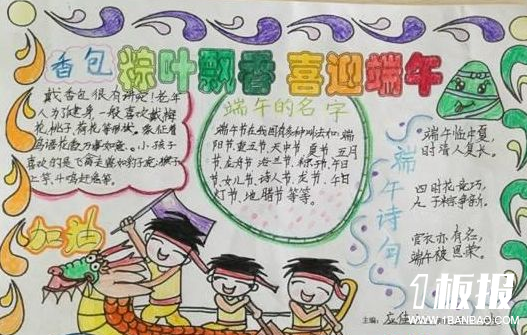 粽叶飘香 喜迎端午
香包
戴香包很有讲究!老年
人为了强身,一般喜欢戴梅
花、桃子、荷花等形状,象征着
鸟语花香,万事如意。小孩子
喜欢的是飞禽走兽如豹子、
上竿、斗鸡赶兔等。
端午的名字
端午节在我国有多种叫法如:端
阳节、重五节、天中节、夏节、五月
节、菖节、浴兰节、粽子节、午日
节、女儿节、诗人节、龙节、午日
灯节、地腊节等等。
端午诗句
端午临中夏,
时清人复长。
四时花竞巧,
九子粽争新。
宫衣亦有名,
端午被恩荣。
加油
主编:
1板报
WWW.1BANBAO.COM